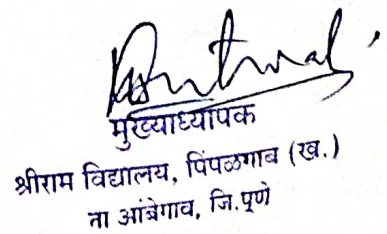 मुख्याध्यापक
श्रीराम विद्यालय, पिंपळगाव (ख.)
ता आंबेगाव, जि.पुणे